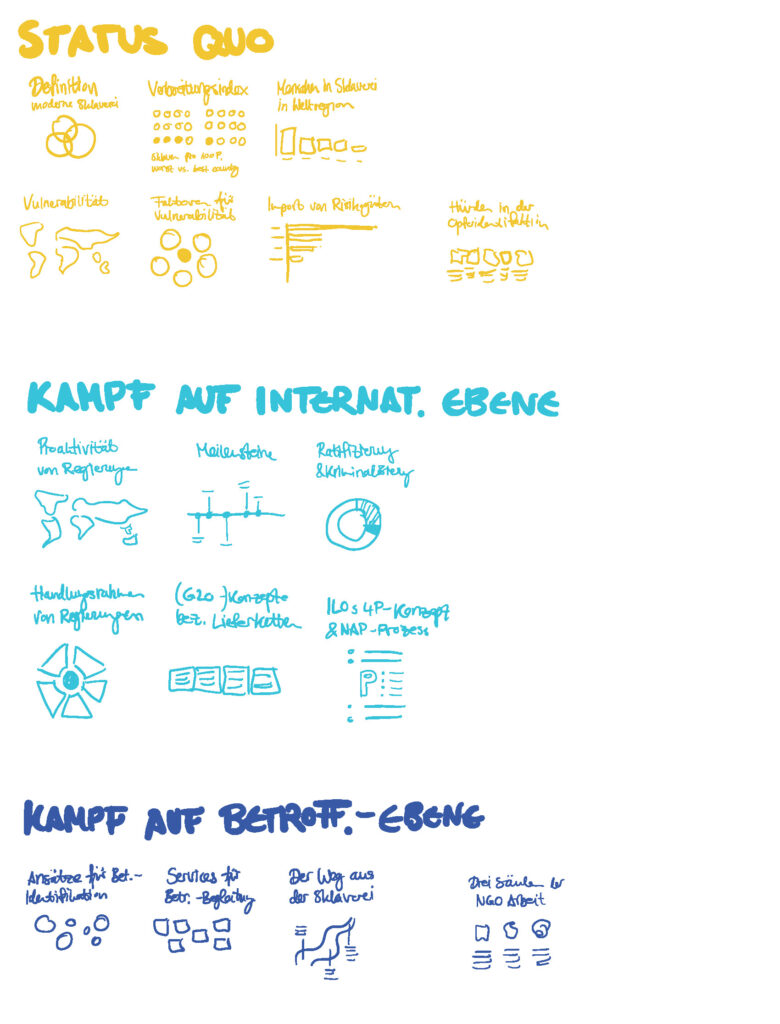 STATUS QUO
Definition
moderne Sklaverei
Verbreitungsindex
Sklaven pro 100 P.
worst vs. best country
Menschen in Sklaverei
in Weltregion
Vulnerabilität
Faktoren für
Vulnerabilität
Import von Risikogütern
Hürden in der
KAMPF AUF INTERNAT. EBENE
Proaktivität
von Regierungen
Meilensteine
Ratifizierung
& Kriminalisierung
Handlungsrahmen
von Regierungen
(G20-)Konzepte
bez. Lieferketten
ILOs 4P-Konzept
& NAP-Prozess
P
KAMPF AUF BETROFF.-EBENE
Ansätze für Bet.-
Identifikation
Services für
Betr.-Begleitung
Der Weg aus
der Sklaverei
Drei Säulen der
NGO Arbeit